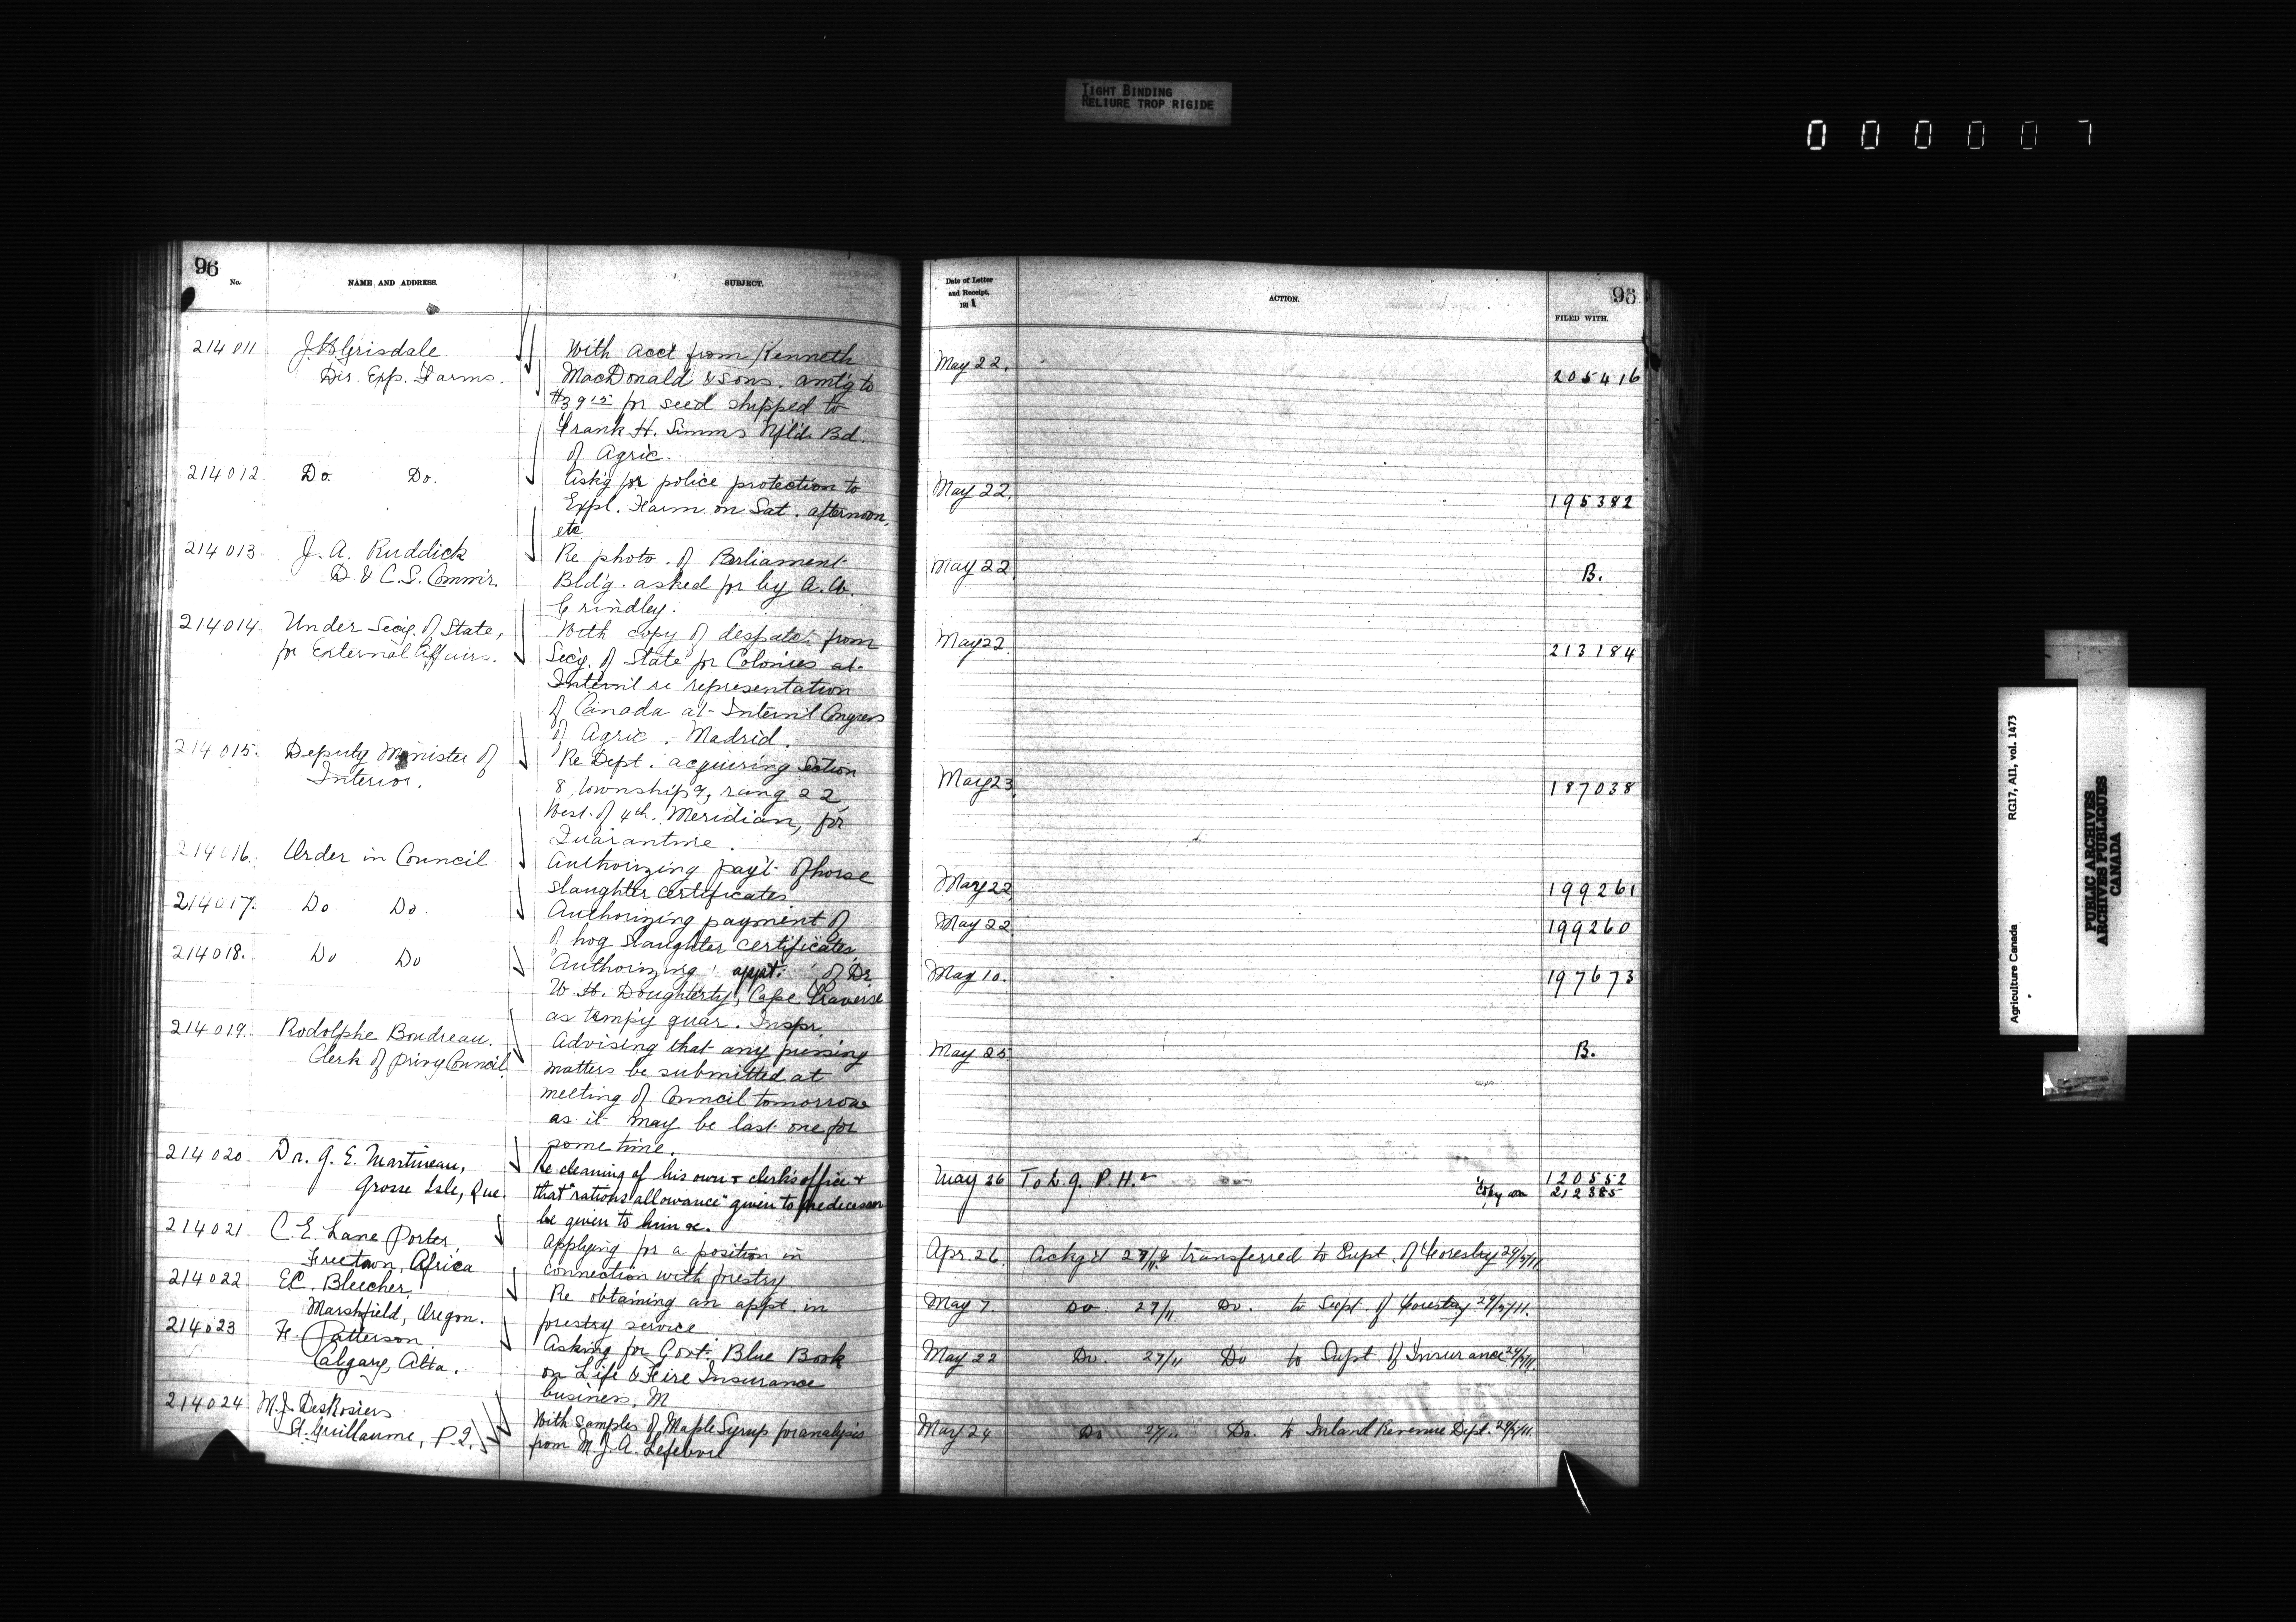 TIGHT BINDING
RELIURE TROP RIGIDE
0 0 0 0 0 7
96
No.
NAME AND ADDRESS.
SUBJECT.
214011
J.H. Grisdale
Dir. Exp. Farms.
With acct from Kenneth
MacDonald & Sons. amt'g to
$39 15 for seed shipped to
Frank H. Simms Nfld. Bd.
of Agric.
214012
Do. Do.
Ask'g for police protection to
Expl. Farm on Sat. afternoon,
etc
214013
J. A. Ruddick
D. & C. S. Commr.
Re photo. of Parliament
Bldg. asked for by A. W.
Grindley.
214014
Under Secy. of State,
for External Affairs.
With copy of despatch from
Secy. of State for Colonies at
Intern'l re representation
of Canada at Intern'l Congress
of Agric. - Madrid.
214015.
Deputy Minister of
Interior.
Re Dept. acquiring Section
8, township 9, rang 22,
West of 4th. Meridian, for
Quarantine.
214016.
Order in Council
Authorizing pay't of horse
slaughter certificates
214017.
Do. Do.
Authorizing payment of
of hog slaughter certificates
214018.
Do Do
Authorizing appt. of Dr.
W. H. Doughterty, Cape Traverse
as temp'y quar. Inspr.
214019.
Rodolphe Boudreau.
Clerk of Privy Council.
Advising that any pressing
matters be submitted at
meeting of Council tomorrow
as it may be last one for
some time.
214020
Dr. G. E. Martineau,
Grosse Isle, Que.
Re cleaning of his own & clerk's office &
that "rations allowance" given to predecessor
be given to him &c.
214021
C. E. Lane Porter,
Freetown, Africa
Applying for a position in
connection with forestry.
214022
E.C. Bleecher,
Marshfield, Oregon.
Re obtaining an appt. in
forestry service
214023
F. Patterson
Calgary, Alta.
Asking for Govt. Blue Book
on Life & Fire Insurance
business, M
214024
M. J. DesRosiers
St. Guillaume, P.Q.
With samples of Maple Syrup for analysis
from M. J. A. Lefebvre
Date of Letter
and Receipt,
1911
ACTION.
96
FILED WITH.
May 22.
205416
May 22.
195382
May 22.
B.
May 22.
213184
May 23.
187038
May 22
199261
May 22
199260
May 10.
197673
May 25
B.
May 26 To D. G. P. H. 120552
Copy on 212385
Apr. 26. Ackg'd 27/11 & transferred to Supt. of Forestry 29/5/11.
May 7. Do 27/11 Do. to Supt. of Forestry 29/5/11.
May 22 Do. 27/11 Do to Supt. of Insurance 29/5/11.
May 24 Do 27/11 Do. to Inland Revenue Dept. 29/5/11.
Agriculture Canada RG17, AII, vol. 1473
PUBLIC ARCHIVES
ARCHIVES PUBLIQUES
CANADA